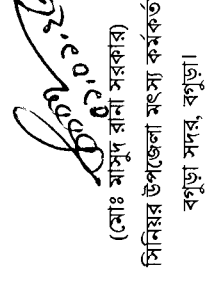 (মোঃ মাসুদ রানা সরকার)
সিনিয়র উপজেলা মৎস্য কর্মকর্ত
বগুড়া সদর, বগুড়া।